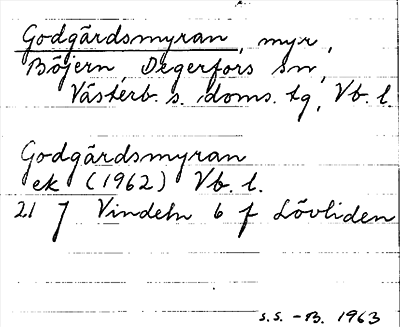 Godgårdsmyran, myr,
Böjern, Degerfors sn,
Västerb. s. doms. tg, Vb. l.
Godgårdsmyran
ek (1962) Vb. l.
21 J Vindeln 6 f Lövliden
S.S. - B. 1963